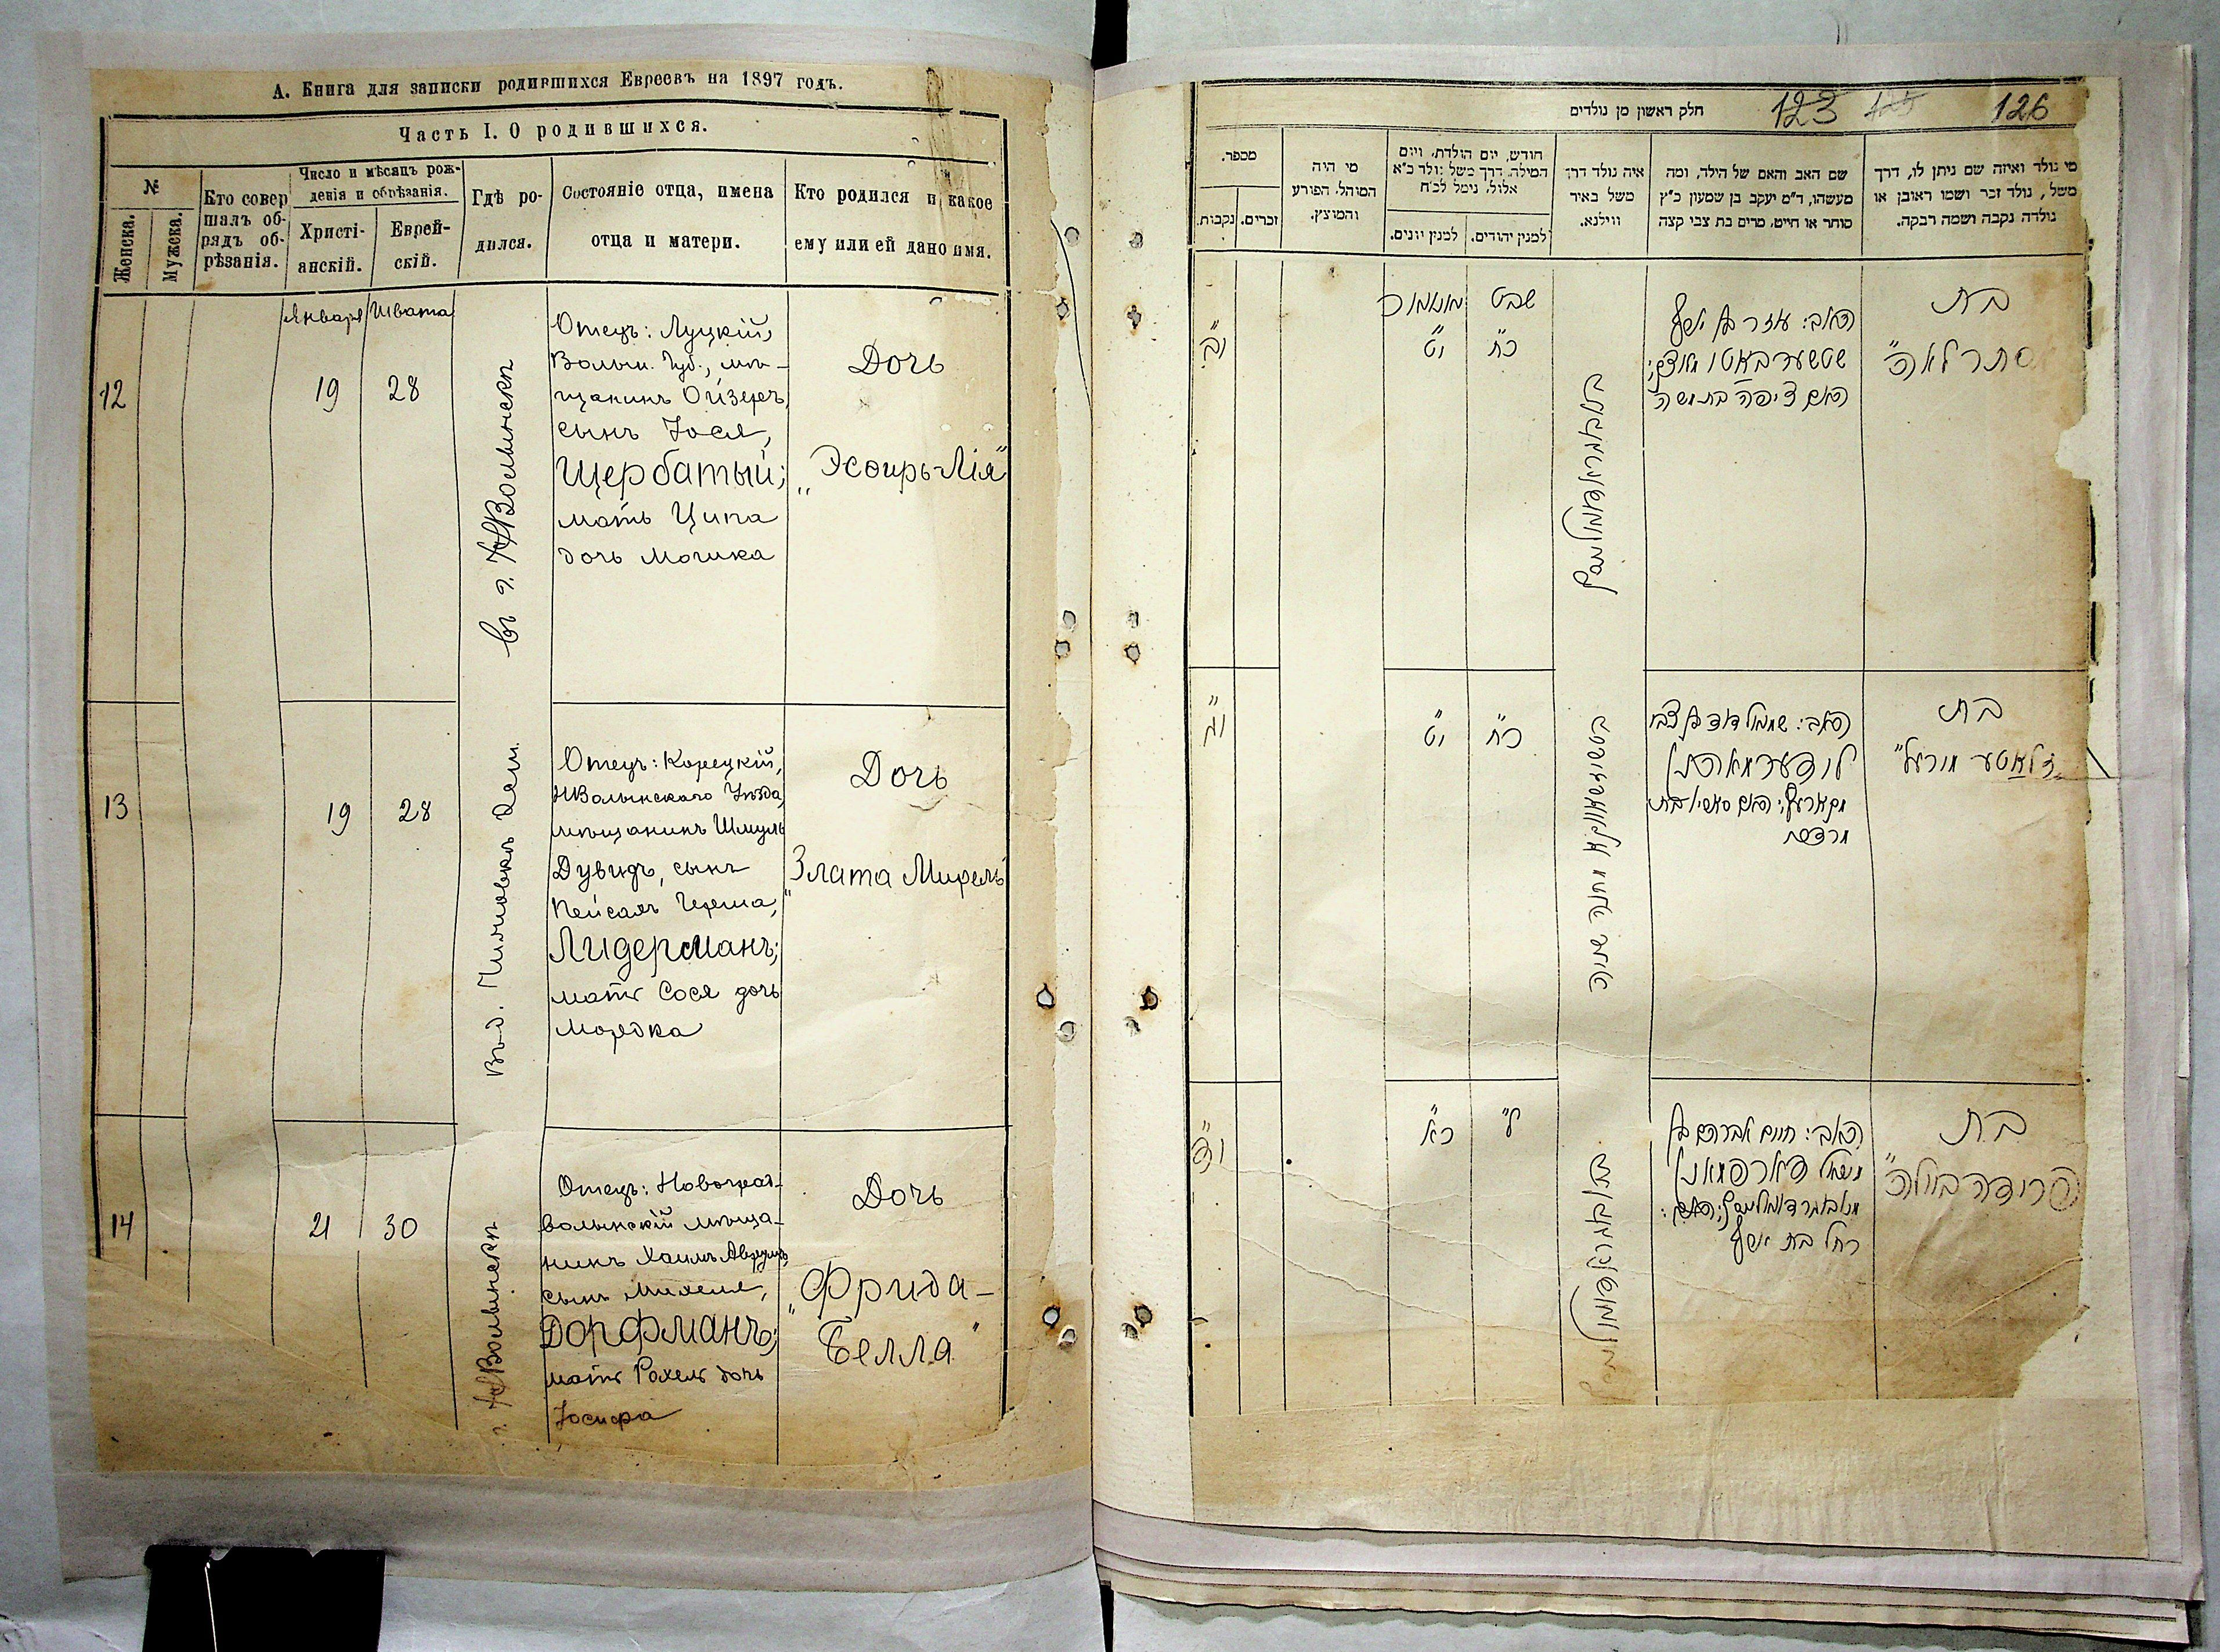 А. Книга для записки родившихся Евреевъ на 1897 годъ.
Часть I. О родившихся.
№
Женска.
Мужеска.
Кто совер
шалъ об-
рядъ об-
рѣзанія.
Число и мѣсяцъ рож-
денія и обрѣзанія.
Христі-
анскій.
Еврей-
скій.
Гдѣ ро-
дился.
Состояніе отца, имена
отца и матери.
Кто родился и какое
ему или ей дано имя.
Января
Швата
12
19
28
въ г. НВолынскѣ
Отецъ: Луцкій,
Волын. Губ., мѣ-
щанинъ Ойзеръ,
сынъ Іося,
Щербатый;
мать Ципа
дочь Мошка
Дочь
„Эсѳирь-Лія"
13
19
28
Отецъ: Корецкій,
НВолынскаго Уѣзда,
мѣщанинъ Шмуль
Дувидъ, сынъ
Пейсахъ Герша,
Лидерманъ;
мать Сося дочь
Мордка
Дочь
„Злата Мирель"
14
21
30
г. НВолынскѣ
Отецъ: Новоград-
волынскій мѣща-
нинъ Хаимъ Аврумъ,
сынъ Михеля,
Дорфманъ;
мать Рохель дочь
Іосифа
Дочь
„Фрида-
Белла"
חלק ראשון מן נולדים
123
126
מספר.
נקבות.
זכרים.
מי היה
המוהל, הפורע
והמוצץ.
חודש, יום הולדת, ויום
המילה, דרך משל נולד כ"א
אלול, נימל לכ"ח
למנין יונים.
למנין יהודים.
איה נולד דרך
משל באיר
ווילנא.
שם האב והאם של הילד, ומה
מעשהו, ד"מ יעקב בן שמעון כ"ץ
סוחר או חייט, מרים בת צבי קצה
מי נולד ואיזה שם ניתן לו, דרך
משל, נולד זכר ושמו ראובן או
נולדה נקבה ושמה רבקה.
שבט
י"ב
י"ט
כ"ח
האב: עזר בן יוסף
האם ציפה בת משה
בת
אסתר לאה"
י"ג
י"ט
כ"ח
האב: שמואל דוד בן צבי
לידערמאן
בת
זלאטע מירעל"
י"ד
כ"א
ל"
האב: חיים אברהם בן
מיכאל דארפמאן
רחל בת יוסף
בת
פרידה ביילה"